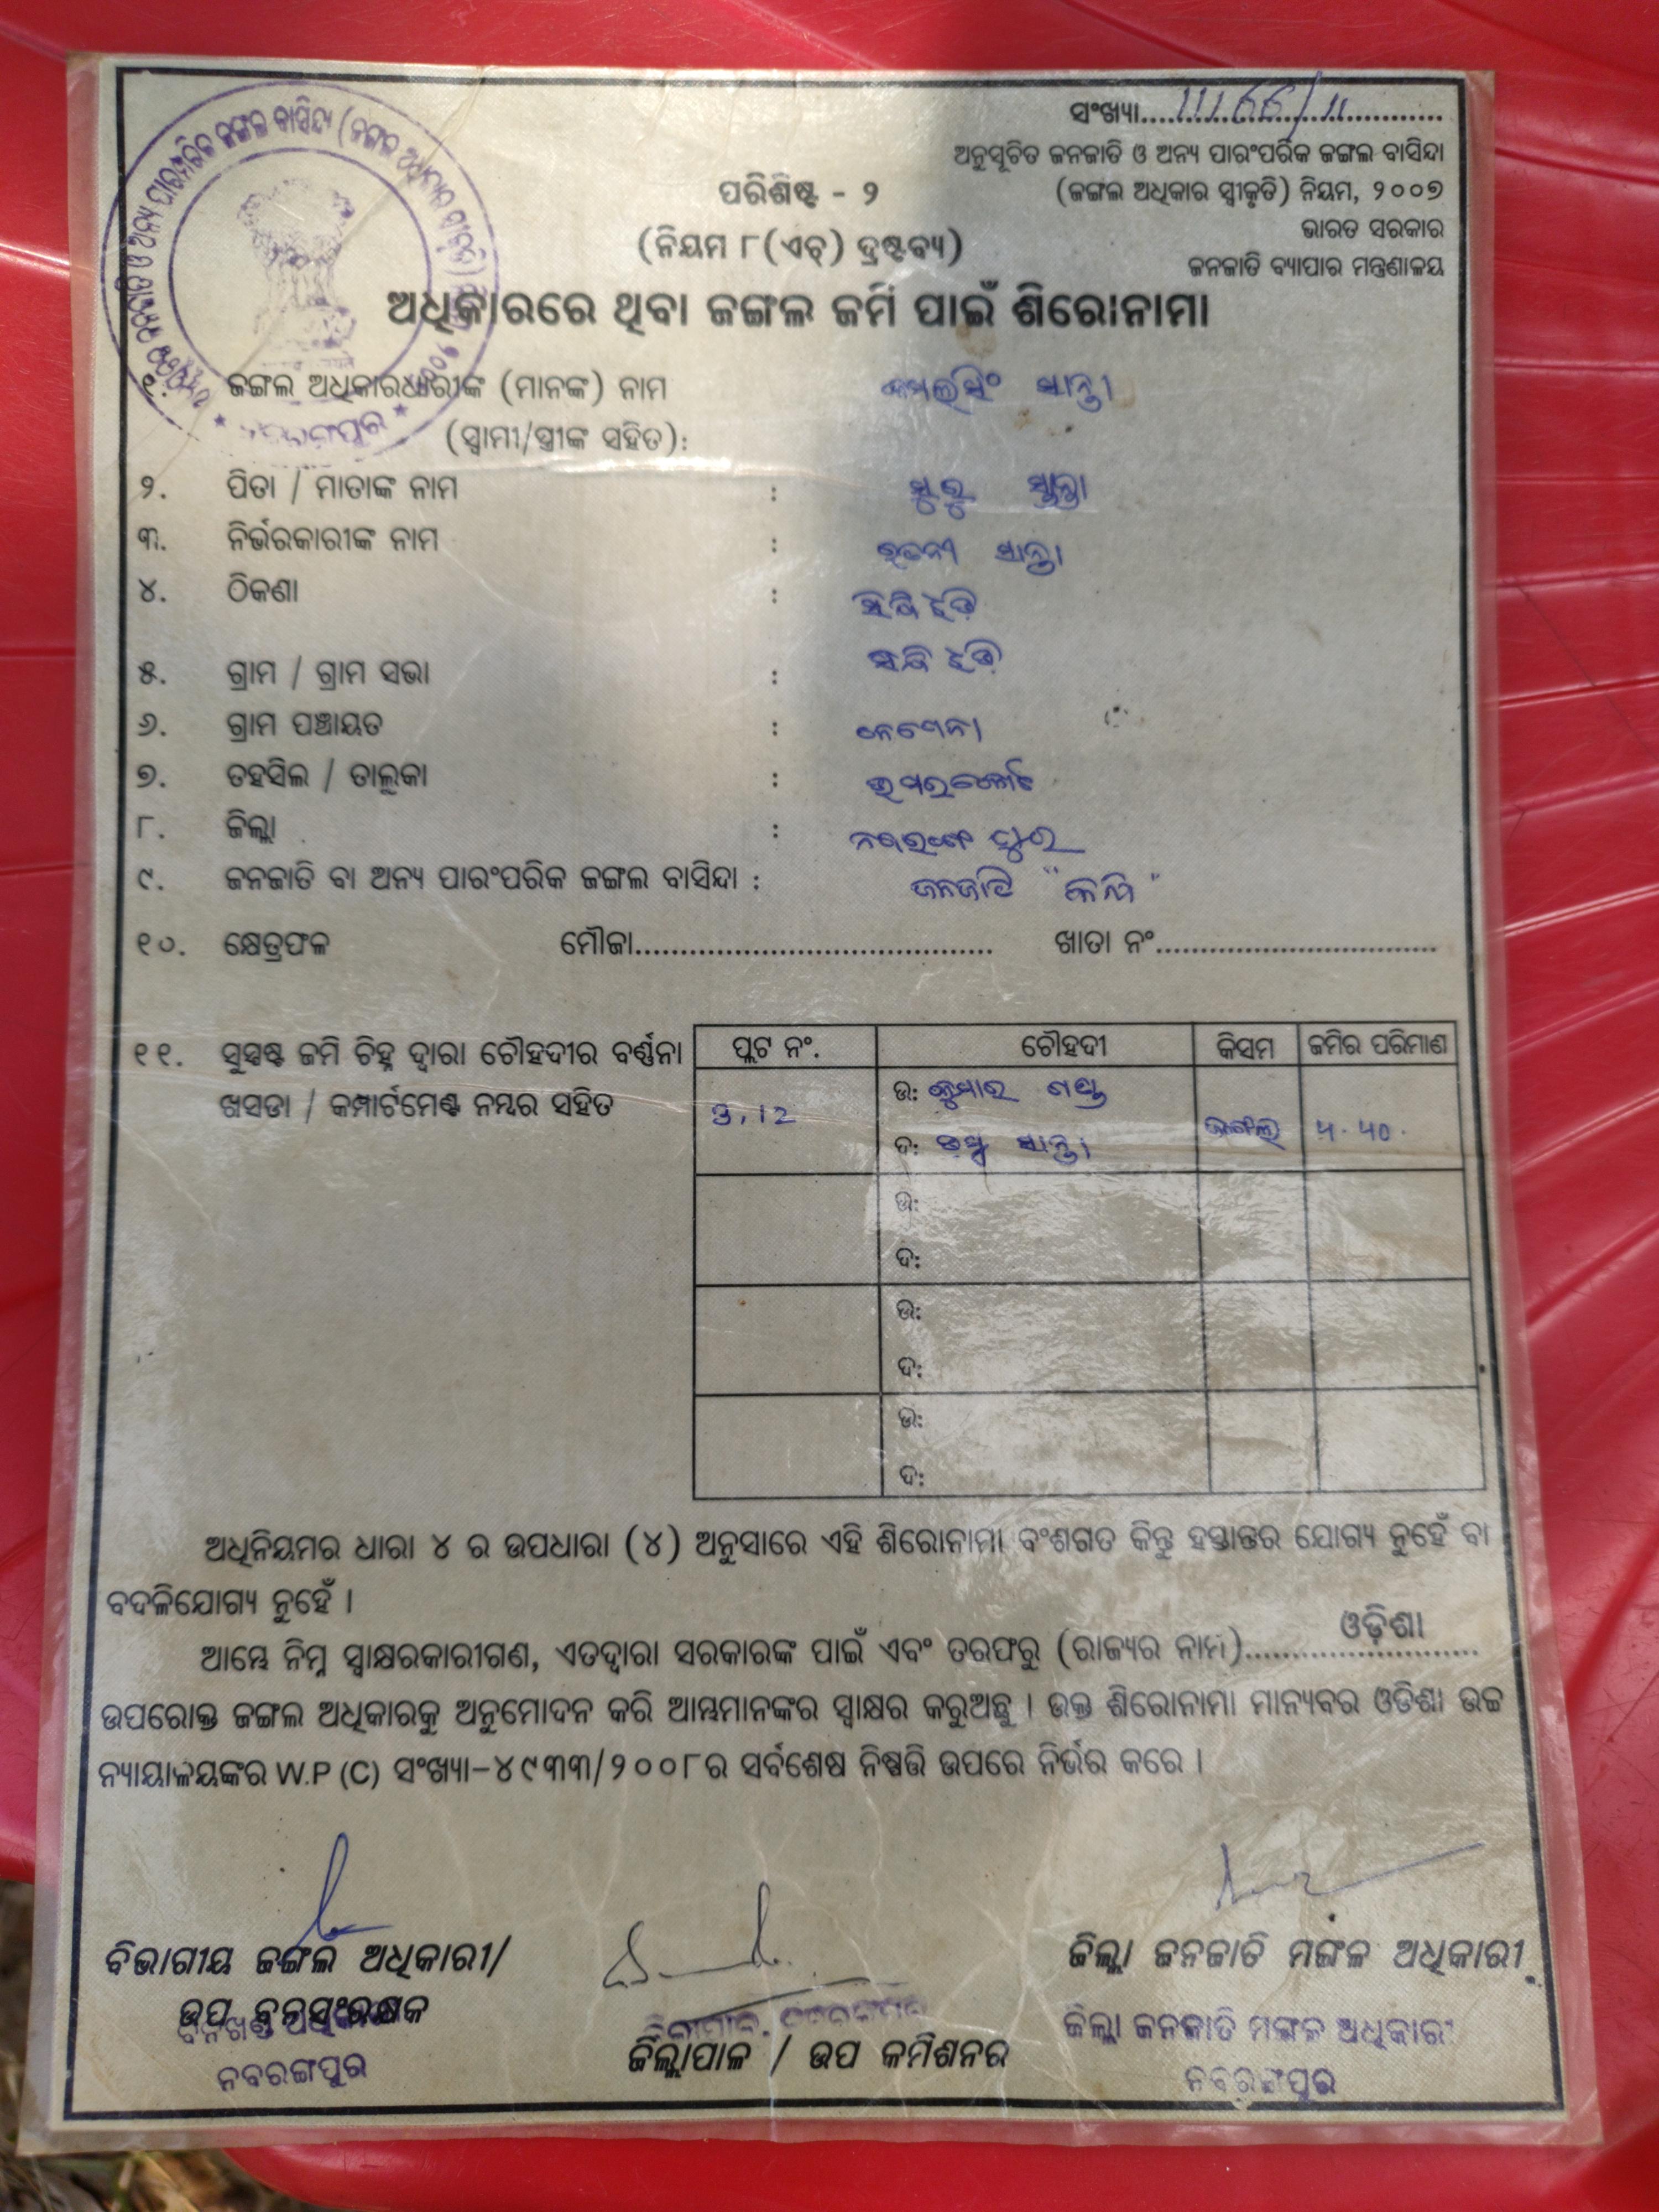 ସଂଖ୍ୟା....11166/11....
ଅନୁସୂଚିତ ଜନଜାତି ଓ ଅନ୍ୟ ପାରଂପରିକ ଜଙ୍ଗଲ ବାସିନ୍ଦା
(ଜଙ୍ଗଲ ଅଧିକାର ସ୍ୱୀକୃତି) ନିୟମ, ୨୦୦୭
ଭାରତ ସରକାର
ଜନଜାତି ବ୍ୟାପାର ମନ୍ତ୍ରଣାଳୟ
ପରିଶିଷ୍ଟ - ୨
(ନିୟମ ୮(ଏଚ୍) ଦ୍ରଷ୍ଟବ୍ୟ)
ଅଧିକାରରେ ଥିବା ଜଙ୍ଗଲ ଜମି ପାଇଁ ଶିରୋନାମା
୧. ଜଙ୍ଗଲ ଅଧିକାରଧାରୀଙ୍କ (ମାନଙ୍କ) ନାମ ସାନ୍ତା
(ସ୍ୱାମୀ/ସ୍ତ୍ରୀଙ୍କ ସହିତ):
୨. ପିତା / ମାତାଙ୍କ ନାମ : ସାନ୍ତା
୩. ନିର୍ଭରକାରୀଙ୍କ ନାମ : ସାନ୍ତା
୪. ଠିକଣା :
୫. ଗ୍ରାମ / ଗ୍ରାମ ସଭା :
୬. ଗ୍ରାମ ପଞ୍ଚାୟତ :
୭. ତହସିଲ / ତାଲୁକା : ଉମରକୋଟ
୮. ଜିଲ୍ଲା : ନବରଙ୍ଗପୁର
୯. ଜନଜାତି ବା ଅନ୍ୟ ପାରଂପରିକ ଜଙ୍ଗଲ ବାସିନ୍ଦା : ଜନଜାତି
୧୦. କ୍ଷେତ୍ରଫଳ ମୌଜା.................... ଖାତା ନଂ....................
୧୧. ସୁସ୍ପଷ୍ଟ ଜମି ଚିହ୍ନ ଦ୍ୱାରା ଚୌହଦୀର ବର୍ଣ୍ଣନା
ଖସଡା / କମ୍ପାର୍ଟମେଣ୍ଟ ନମ୍ବର ସହିତ
ପ୍ଲଟ ନଂ. ଚୌହଦୀ କିସମ ଜମିର ପରିମାଣ
ଉ: କୁମାର
ଦ: ସାନ୍ତା ଜଙ୍ଗଲ
ଉ:
ଦ:
ଉ:
ଦ:
ଉ:
ଦ:
ଅଧିନିୟମର ଧାରା ୪ ର ଉପଧାରା (୪) ଅନୁସାରେ ଏହି ଶିରୋନାମା ବଂଶଗତ କିନ୍ତୁ ହସ୍ତାନ୍ତର ଯୋଗ୍ୟ ନୁହେଁ ବା
ବଦଳିଯୋଗ୍ୟ ନୁହେଁ ।
ଆମ୍ଭେ ନିମ୍ନ ସ୍ୱାକ୍ଷରକାରୀଗଣ, ଏତଦ୍ୱାରା ସରକାରଙ୍କ ପାଇଁ ଏବଂ ତରଫରୁ (ରାଜ୍ୟର ନାମ)....ଓଡ଼ିଶା....
ଉପରୋକ୍ତ ଜଙ୍ଗଲ ଅଧିକାରକୁ ଅନୁମୋଦନ କରି ଆମ୍ଭମାନଙ୍କର ସ୍ୱାକ୍ଷର କରୁଅଛୁ । ଉକ୍ତ ଶିରୋନାମା ମାନ୍ୟବର ଓଡିଶା ଉଚ୍ଚ
ନ୍ୟାୟାଳୟଙ୍କର W.P (C) ସଂଖ୍ୟା-୪୯୩୩/୨୦୦୮ର ସର୍ବଶେଷ ନିଷ୍ପତ୍ତି ଉପରେ ନିର୍ଭର କରେ ।
ବିଭାଗୀୟ ଜଙ୍ଗଲ ଅଧିକାରୀ/
ଉପ ବନସଂରକ୍ଷକ
ନବରଙ୍ଗପୁର
ଜିଲ୍ଲାପାଳ / ଉପ କମିଶନର
ଜିଲ୍ଲା ଜନଜାତି ମଙ୍ଗଳ ଅଧିକାରୀ
ଜିଲ୍ଲା ଜନଜାତି ମଙ୍ଗଳ ଅଧିକାରୀ
ନବରଙ୍ଗପୁର